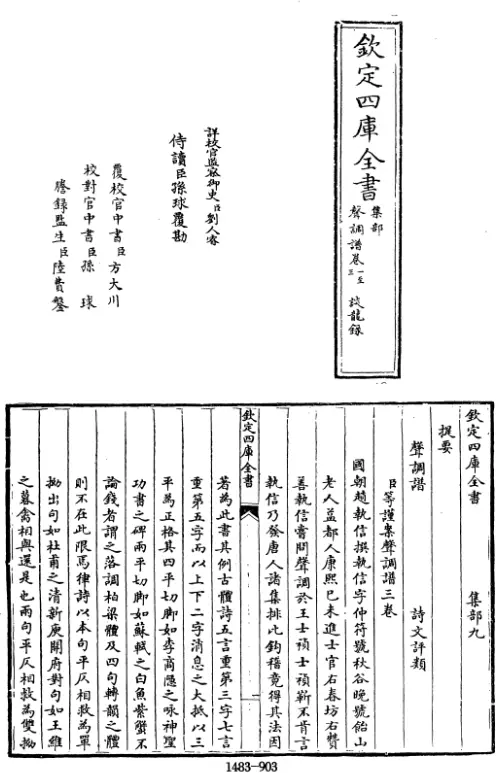 欽定四庫全書
集部
聲調譜卷一至三 談龍錄
詳校官監察御史臣劉人睿
侍讀臣孫球覆勘
覆校官中書臣方大川
校對官中書臣孫球
謄錄監生臣陸費鏊
欽定四庫全書 集部九
提要
聲調譜 詩文評類
臣等謹案聲調譜三卷
國朝趙執信撰執信字仲符號秋谷晚號飴山
老人益都人康熙己未進士官右春坊右贊
善執信嘗問聲調於王士禎士禎靳不肯言
執信乃發唐人諸集排比鈎稽竟得其法因
欽定四庫全書
若為此書其例古體詩五言重第三字七言
重第五字而以上下二字消息之大抵以三
平為正格其四平切脚如李商隱之咏神聖
功書之碑兩平切脚如蘇軾之白魚紫蟹不
論錢者謂之落調柏梁體及四句轉韻之體
則不在此限焉律詩以本句平仄相救為單
拗出句如杜甫之清新庾開府對句如王維
之暮禽相與還是也兩句平仄相救為雙拗
1483-903